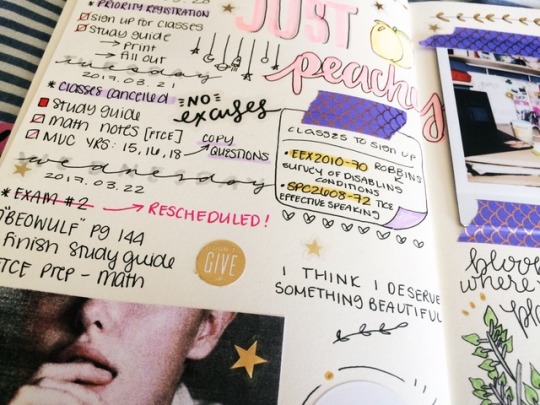 * PRIORITY REGISTRATION
sign up for classes
study guide
→ Print
→ Fill out
tuesday
2017.03.21
* Classes cancelled
Study guide
math notes [FTCE]
MUC VRS: 15, 16, 18 → COPY QUESTIONS
wednesday
2017.03.22
* EXAM #2 → RESCHEDULED!
"BEOWULF" Pg 144
Finish study guide
FTCE PREP - Math
JUST
peachy
=NO=
excuses
CLASSES TO SIGN UP
• EEX2010-70 ROBBINS
SURVEY OF DISABLING
CONDITIONS
• SPC2608-72 TCE
EFFECTIVE SPEAKING
GIVE
I THINK I DESERVE
SOMETHING BEAUTIFUL
bloom
where